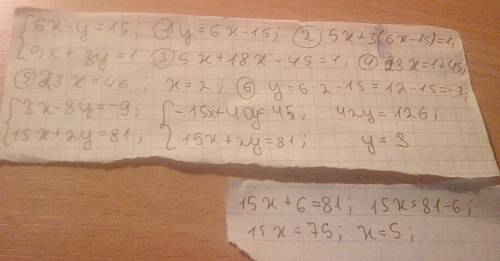 {6x-y=15, ① y=6x-15; ② 5x+3(6x-15)=1,
{5x+3y=1 ③ 5x+18x-45=1, ④ 23x=1+45,
⑤ 23x=46, x=2, ⑥ y=6·2-15=12-15=-3;
{3x-8y=-9, {-15x+40y=45, 42y=126;
{15x+2y=81; {15x+2y=81; y=3
15x+6=81; 15x=81-6;
15x=75; x=5;